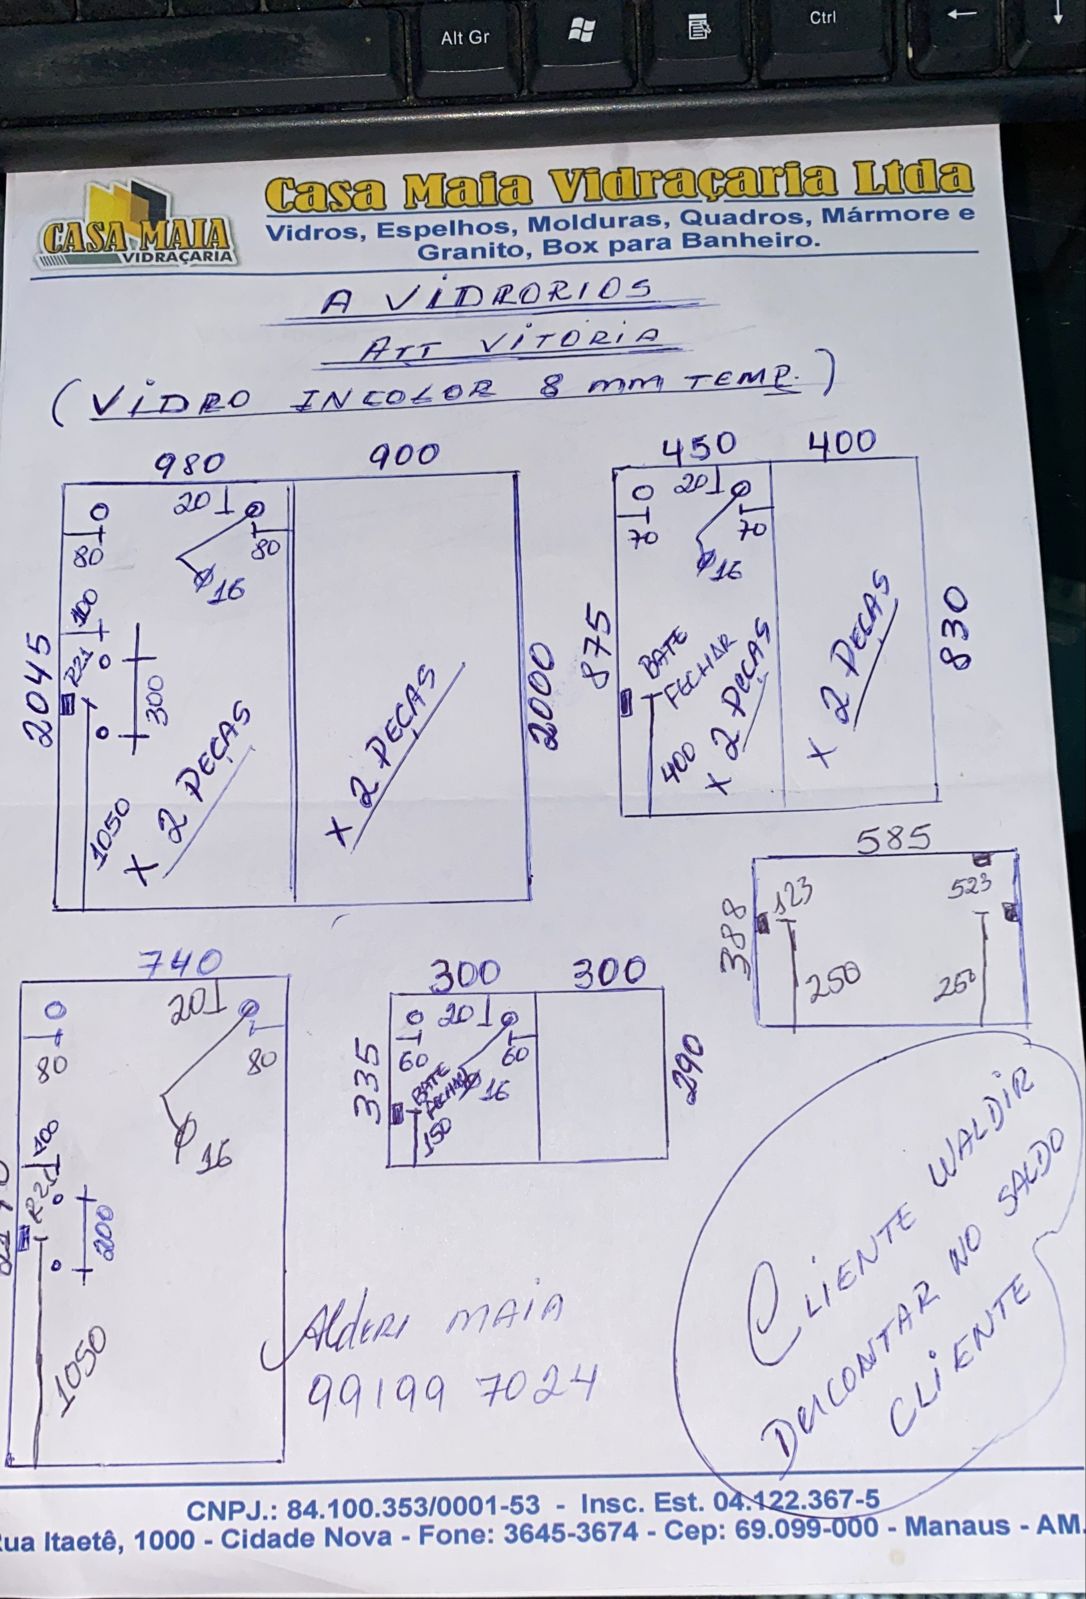 Alt Gr
Ctrl
CASA MAIA
VIDRAÇARIA
Casa Maia Vidraçaria Ltda
Vidros, Espelhos, Molduras, Quadros, Mármore e
Granito, Box para Banheiro.
A VIDRORIOS
ATT VITORIA
(VIDRO INCOLOR 8 mm TEMP.)
980
900
20
80
80
Ø16
100
R21
300
2045
1050
X 2 PEÇAS
X 2 PEÇAS
2000
450
400
20
70
70
Ø16
875
BATE
FECHAR
400
X 2 PEÇAS
X 2 PEÇAS
830
585
388
123
523
250
250
740
20
80
80
Ø16
100
R21
200
1050
300
300
20
60
60
335
BATE
FECHAR
Ø16
150
290
CLIENTE WALDIR
DESCONTAR NO SALDO
CLIENTE
Alderi MAIA
99199 7024
CNPJ.: 84.100.353/0001-53 - Insc. Est. 04.122.367-5
Rua Itaetê, 1000 - Cidade Nova - Fone: 3645-3674 - Cep: 69.099-000 - Manaus - AM.